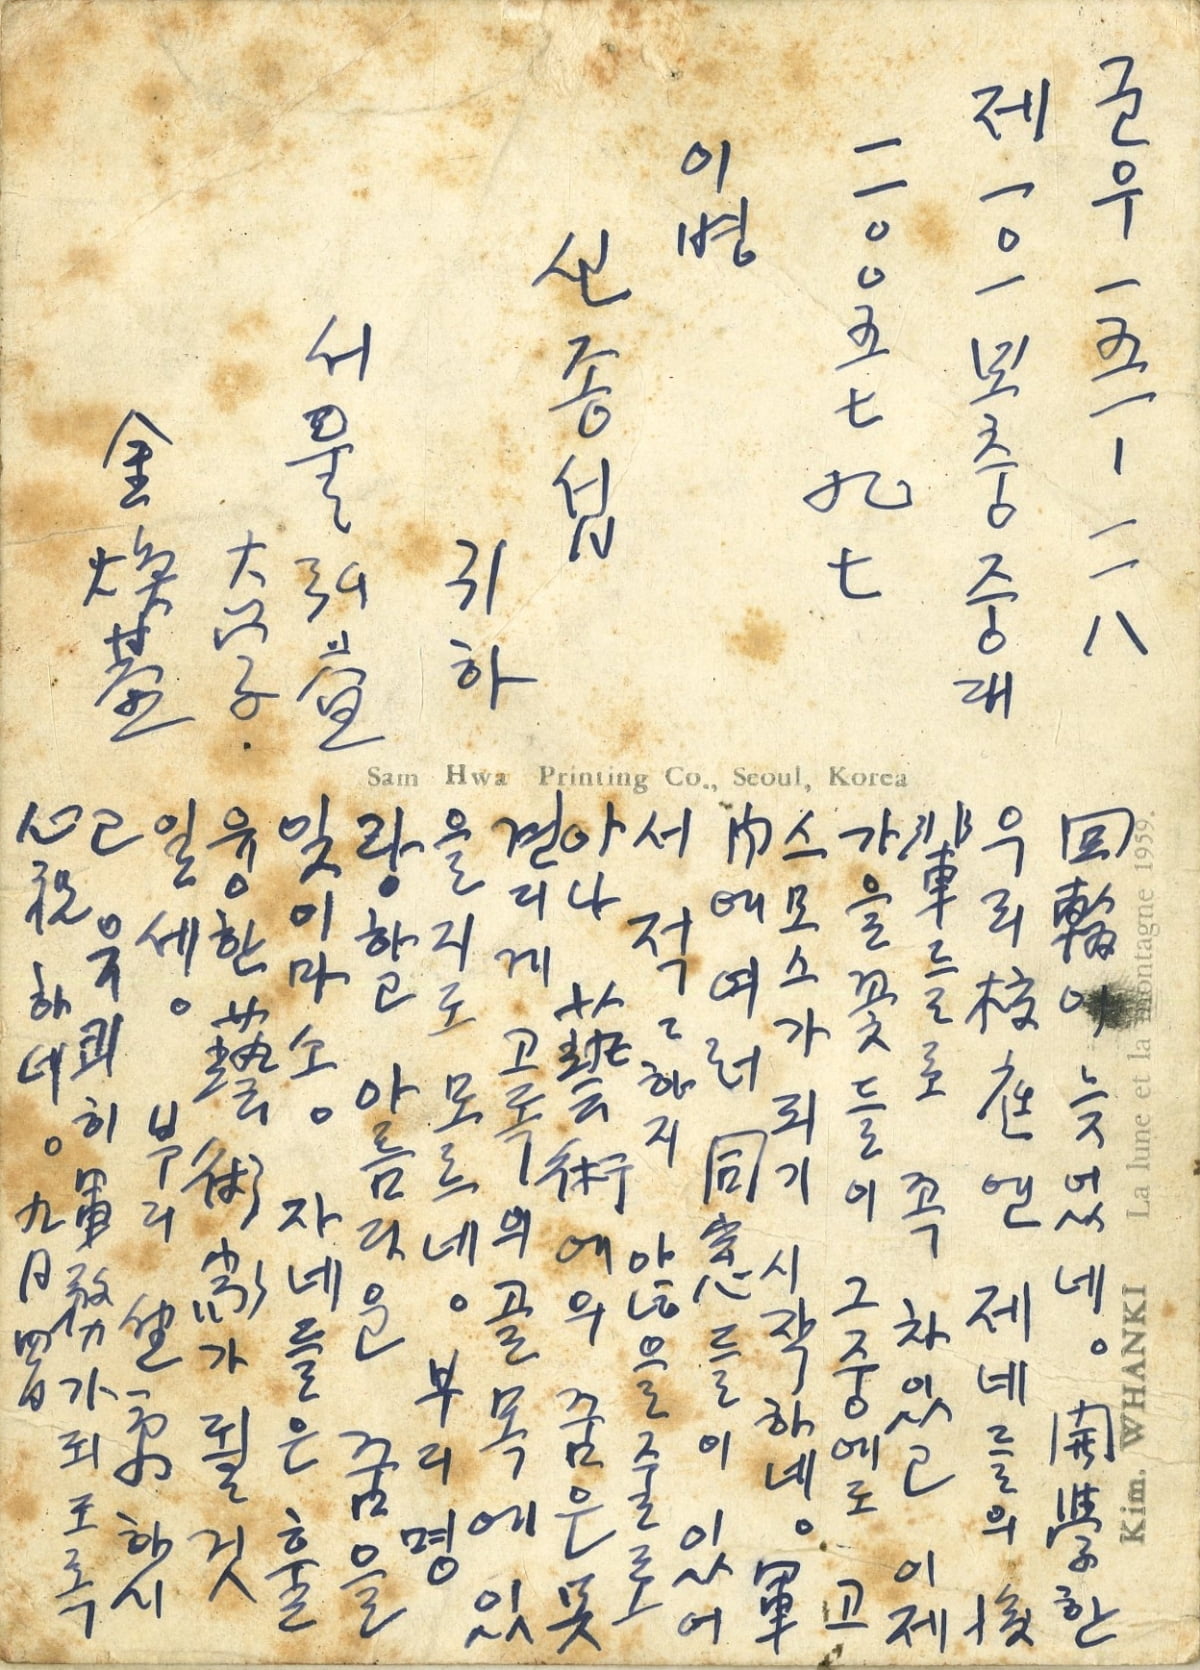 군우 一五一 - 二八
제 一〇一 보충중대
二〇〇五七九七
이병
신종섭
귀하
서울 弘益
大學
金煥基
Sam Hwa Printing Co., Seoul, Korea
Kim. WHANKI La lune et la montagne 1959.
回翰이 늦었네。 開學한
우리 校庭엔 제네들의 後
輩들로 꼭 차있고 이제
가을꽃들이 그중에도 고
스모스가 되기 시작하네。 軍
內에 여러 同窓들이 있어
서 적적하지 않음을 줄로
아나 藝術에의 꿈은 못
견디게 고독의 골목에 있
을지도 모르네。 부리 명
랑하고 아름다운 꿈을
잊이마소。 자네들은 훌
융한 藝術家가 될 것
일세。 부리 하시
고 유쾌히 軍務가 되도록
心祝하네。 九月 四日